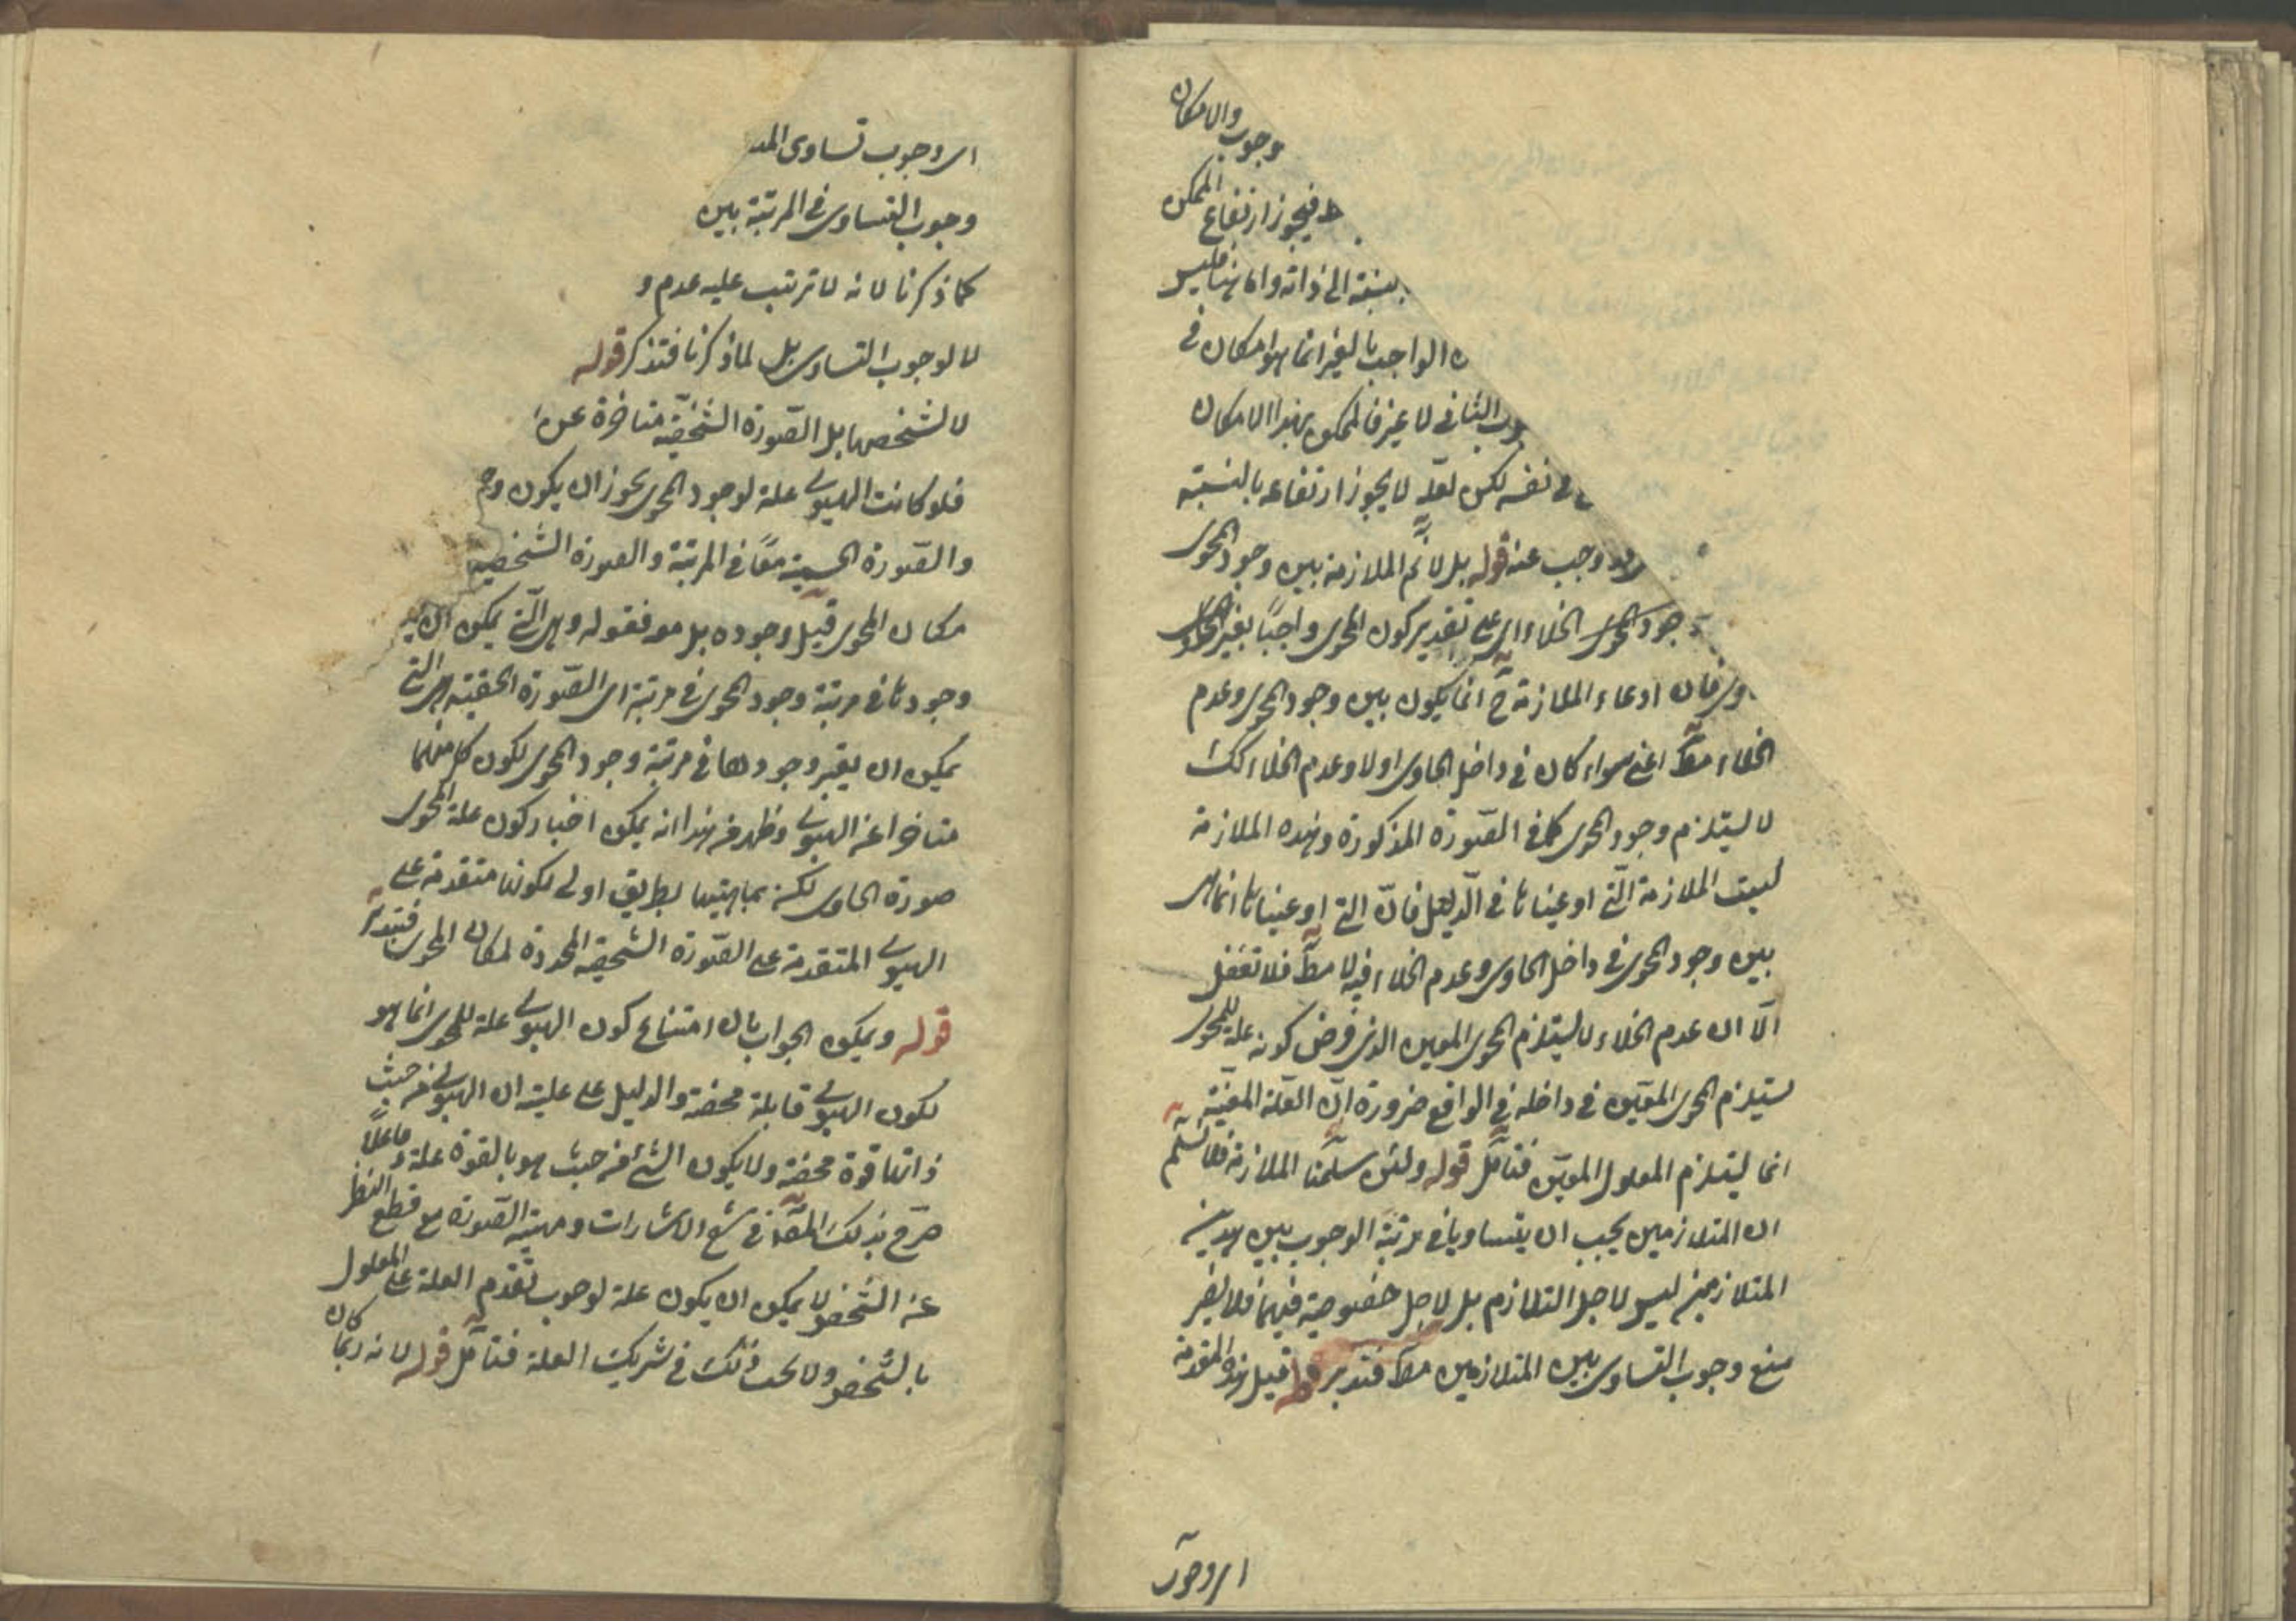 وجوب والامكان
فيجوز ارتفاع الممكن
بنسبة الى ذاته واما هنا فليس
الواجب بالغير انما هو امكان في
الثاني لا غير فالممكن بهذا الامكان
في نفسه لكن لعله لا يجوز ارتفاعه بالنسبة
وجب عنه قوله بل لانم الملازمة بين وجود المحوى
وجود المحوى الخلاء اى على تقدير كون المحوى واجبًا بغير الحاوى
فان ادعاء الملازمة ح انما يكون بين وجود المحوى وعدم
الخلاء مطّ اعنى سواء كان في داخل الحاوى اولا وعدم الخلاء كك
لا يستلزم وجود المحوى كما في الصّورة المذكورة وهذه الملازمة
ليست الملازمة الّتي ادعيناها في الّدليل فانّ التي ادعيناها انما هى
بين وجود المحوى في داخل الحاوى وعدم الخلاء فيه لا مطّ فلا تغفل
الّا ان عدم الخلاء لا يستلزم المحوى المعين الذى فرض كونه علة للمحوى
يستلزم المحوى المعيّن في داخله في الواقع ضرورة انّ العلّة المعيّنة
انما يستلزم المعلول المعيّن فتأمّل قوله ولئن سلّمنا الملازمة فلا نسلّم
ان المتلازمين يجب ان يتساويا في مرتبة الوجوب بين هذين
المتلازمين ليس لاجل التلازم بل لاجل خصوصية فيهما فلا يضر
منع وجوب التساوى بين المتلازمين مطّ فتدبر قوله قيل هذه المقدمة
اى وجوب
اى وجوب تساوى المت
وجوب التساوى في المرتبة بين
كما ذكرنا لانه لا ترتب عليه عدم و
لا لوجوب التساوى بل لما ذكرنا فتذكر قوله
لا لشخصها بل الصّورة الشّخصيّة متاخرة عن
فلو كانت الهيولى علة لوجود المحوى يجوز ان يكون
والصّورة الجسمية معًا في المرتبة والصورة الشخصية
مكان المحوى قبل وجوده بل معه فقوله وهى الّتي يمكن ان
وجودها في مرتبة وجود المحوى في مرتبة اى الصّورة الحقيقية هى التي
يمكن ان يعتبر وجودها في مرتبة وجود المحوى لكون كل منهما
متاخرا عن الهيولى وظهر من هذا انه يمكن اختيار كون علة المحوى
صورة الحاوى لكن بماهيتها بطريق اولى لكونها متقدمة على
الهيولى المتقدمة على الصّورة الشخصية المحددة لمكان المحوى فتدبّر
قوله ويمكن الجواب بان امتناع كون الهيولى علة للمحوى انما هو
لكون الهيولى قابلة محضة والدليل على عليته ان الهيولى من حيث
ذاتها قوة محضة ولا يكون الشئ من حيث هو بالقوة علة فاعلًا
صرّح بذلك المحقّق في شرح الاشارات ومهية الصّورة مع قطع النظر
عن الشخص لا يمكن ان يكون علة لوجوب تقدم العلة على المعلول
بالشخص ولا يجب ذلك في شريك العلة فتأمّل قوله لانه ربما كان